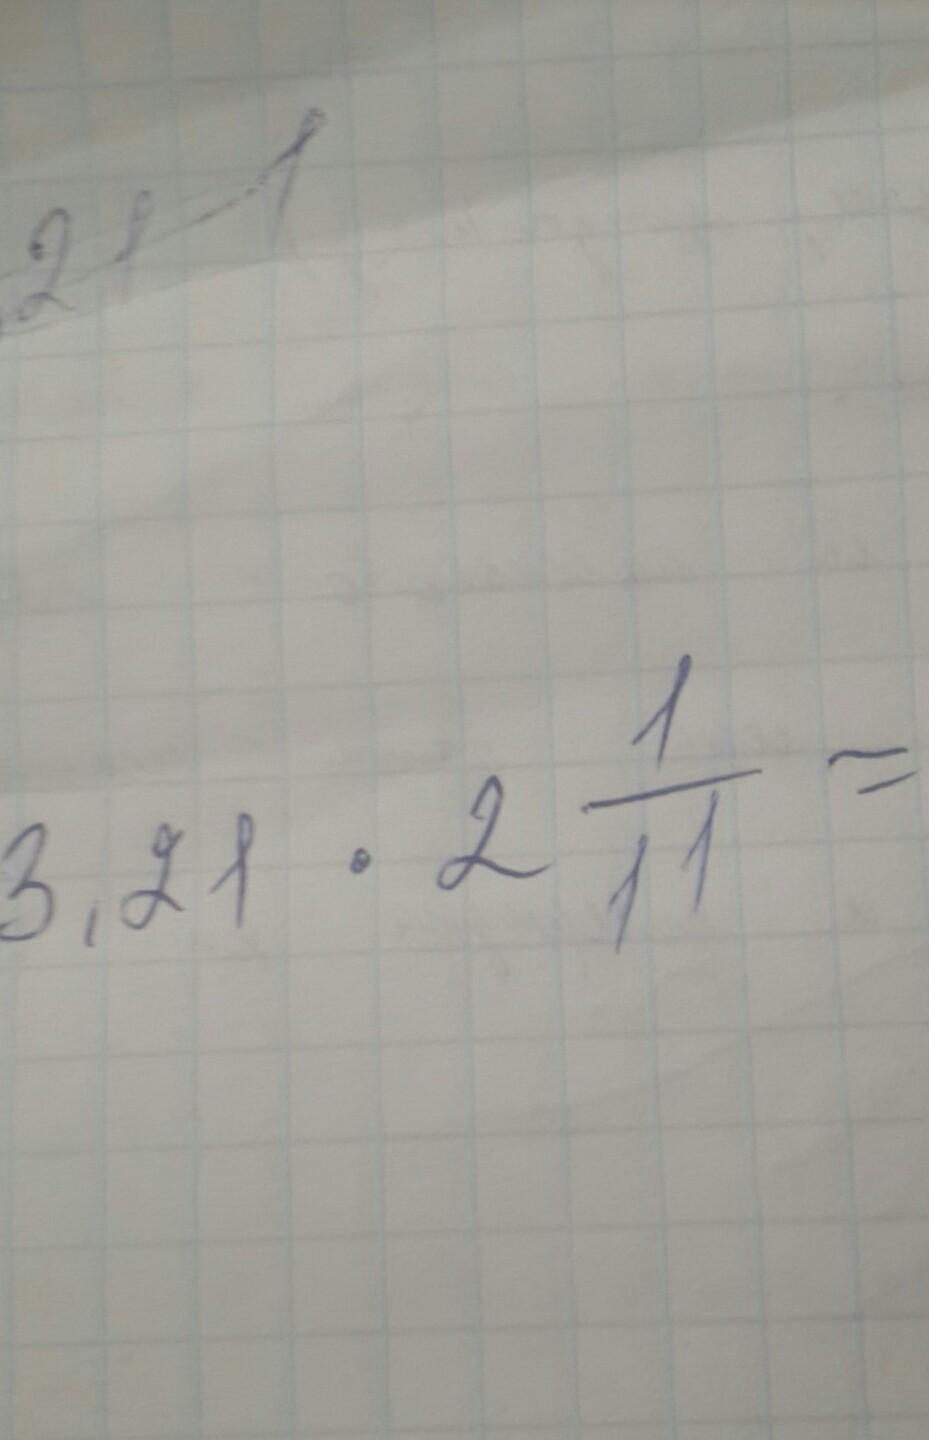 21 1
3,21 · 2 1/11 =